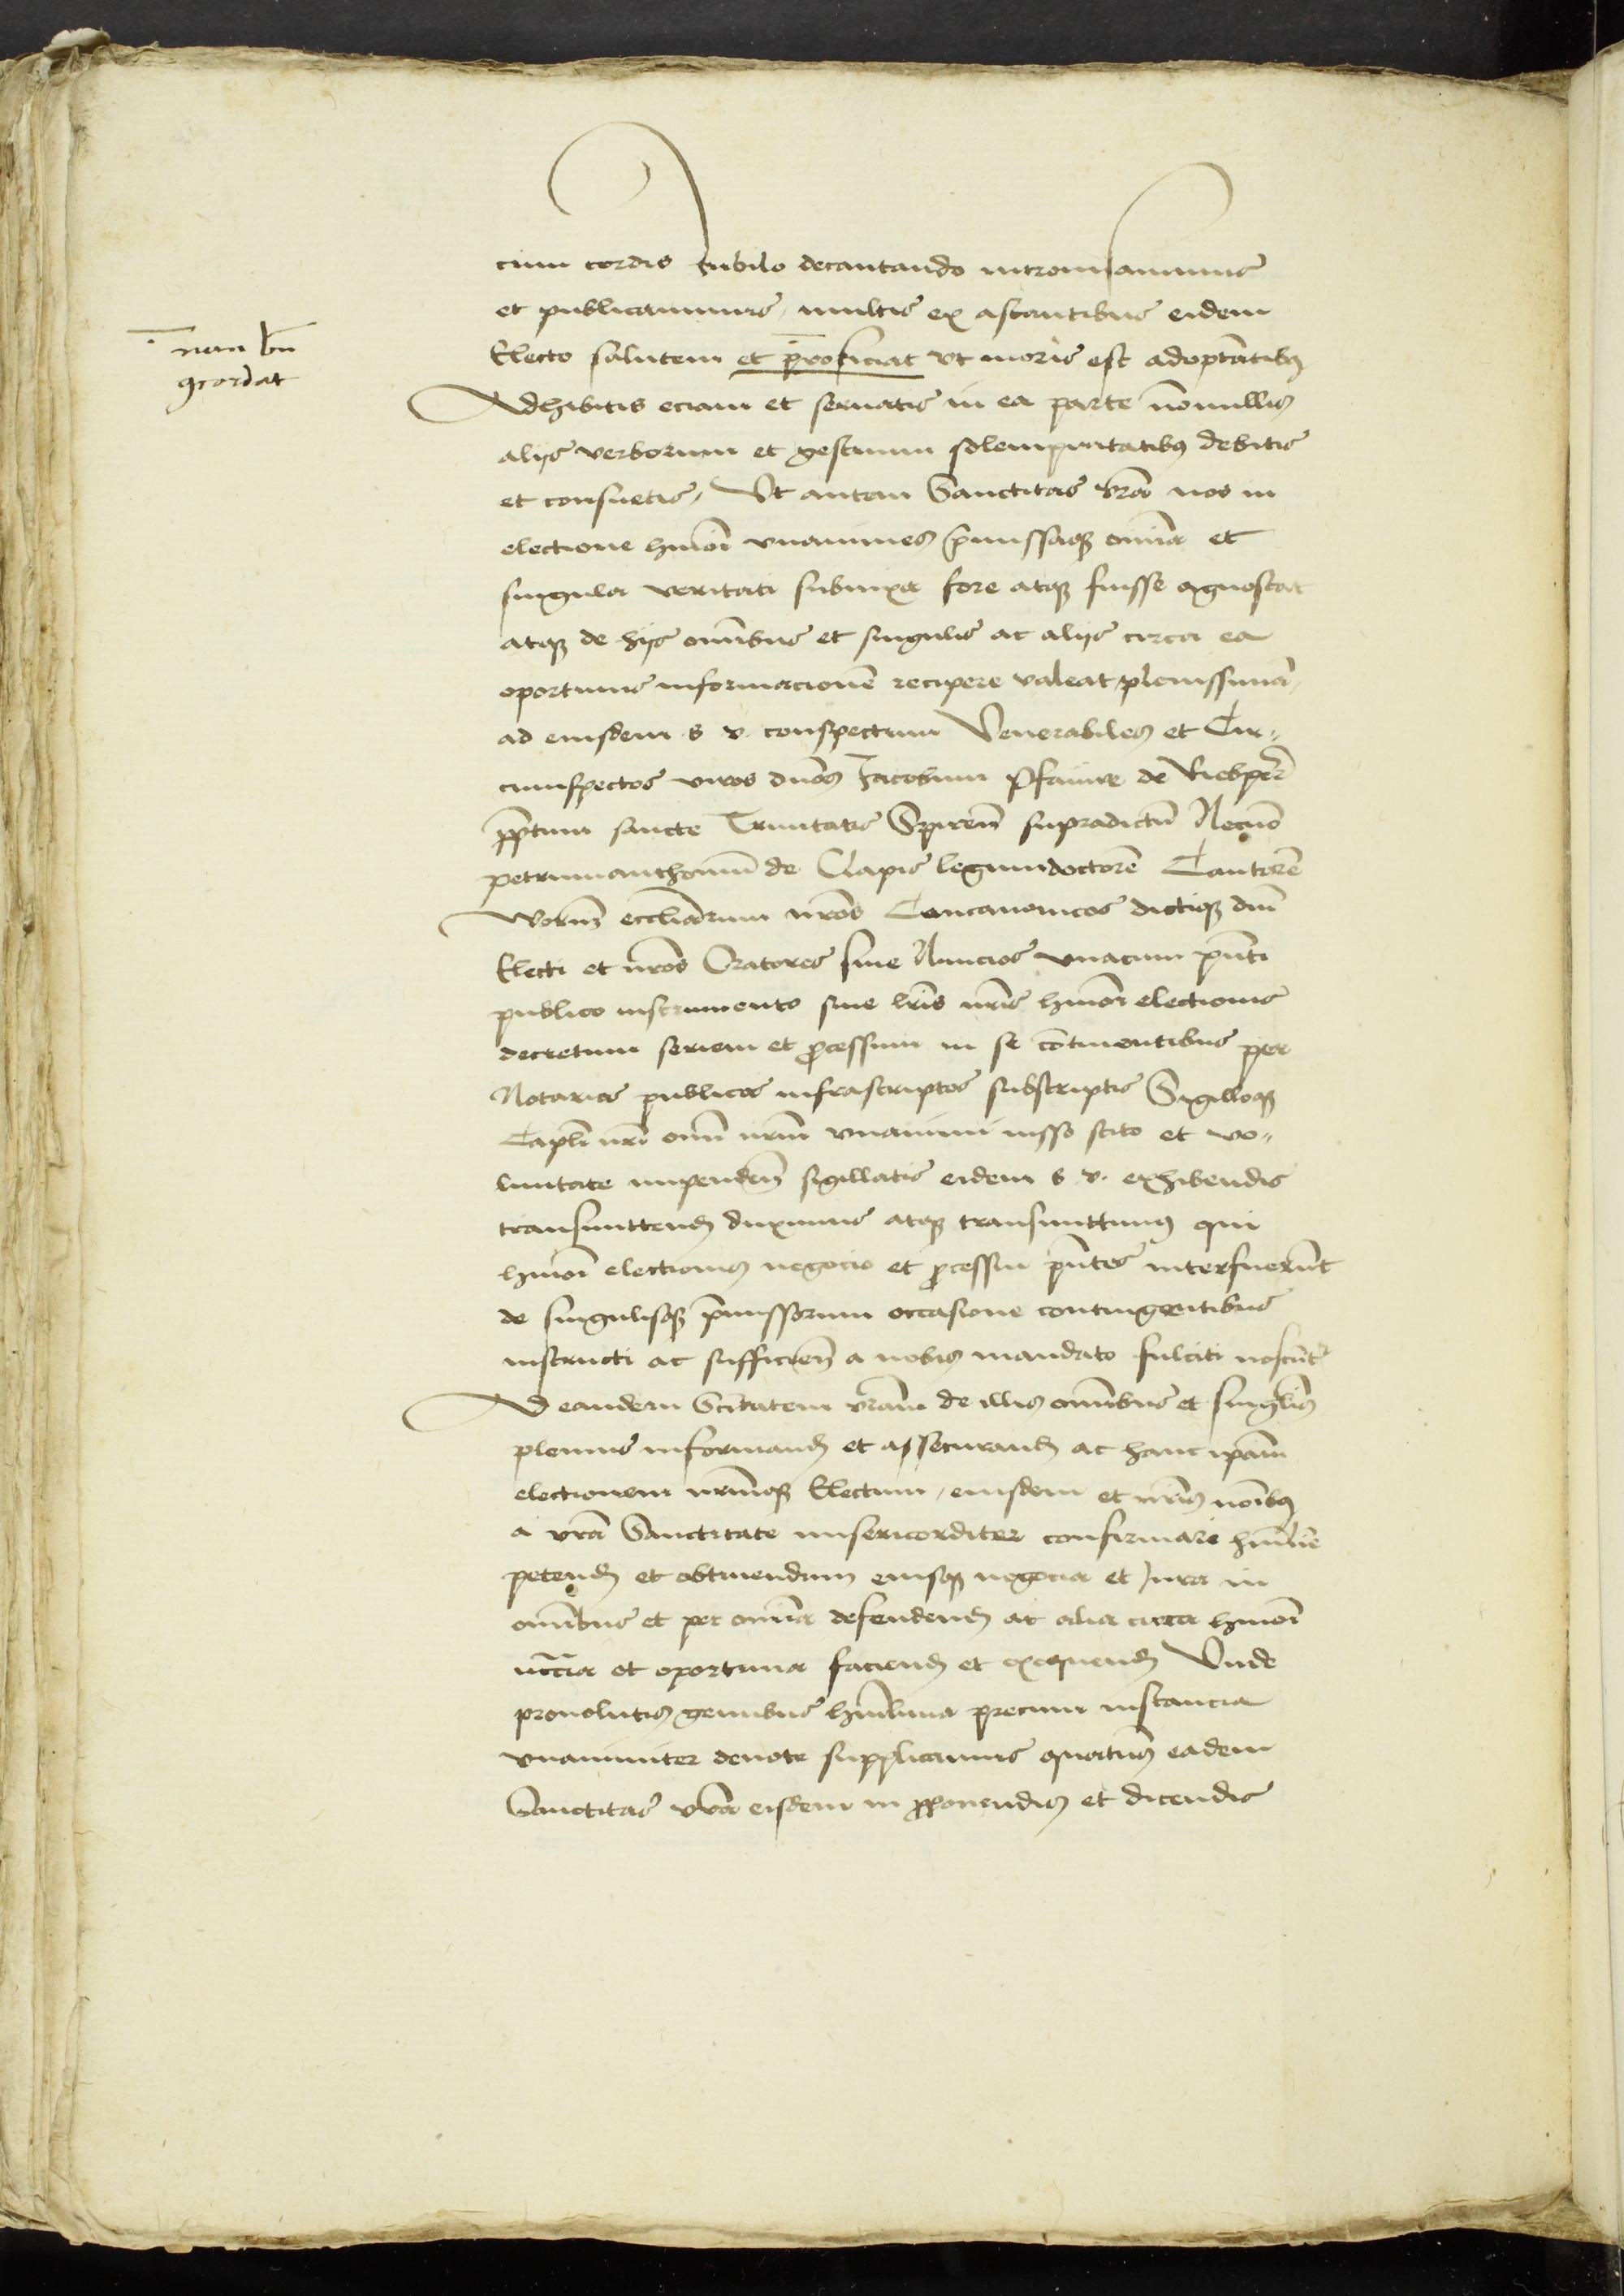 cum cordis iubilo decantando intronizauimus
et publicauimus, multis ex astantibus eidem
Electo salutem et proficiat vt moris est adoptātibꝫ
nan bn̄
ꝯcordat
Adhibitis eciam et seruatis in ea parte nōnullis
alijs verborum et gestuum solempnitatibꝫ debitis
et consuetis, Vt autem Sanctitas vrā nos in
electione hmōi vnanimes p̄missaqꝫ om̄ia et
singula veritati subnixa fore atqꝫ fuisse agnoscat
atqꝫ de hijs om̄ibus et singulis ac alijs circa ea
oportunis informacionē recipere valeat plenissimā,
ad eiusdem s. v. conspectum Venerabiles et Cir-
cumspectos viros dn̄os Jacobum Pfawe de Rieppr̄
pp̄tum sancte Trinitatis Spireñ supradictū Necnō
petrumanthoniū de Clapis legumdoctorē Cantorē
Wormñ eccl̄iarum nr̄os Concanonicos dictiqꝫ dn̄i
Electi et nr̄os Oratores siue Nuncios vnacum pn̄ti
publico instrumento siue lr̄is nr̄is hmōi electionis
decretum seriem et ꝓcessum in se cōtinentibus per
Notarios publicos infrascriptos subscriptis Sigilloqꝫ
Capl̄i nr̄i om̄i nr̄m vnanimi iusso scito et vo-
luntate impendeñ sigillatis eidem s. v. exhibendis
transmittendꝫ duximus atqꝫ transmittimꝰ qui
hmōi electionis negocio et ꝓcessui pn̄tes interfuerūt
de singulisqꝫ p̄missorum occasione contingentibus
instructi ac sufficieñ a nobis mandato fulciti noscūtʳ
Ad eandem Sctītatem vr̄am de illis om̄ibus et singl̄is
plenius informandꝫ et assecurandꝫ ac hanc ipām
electionem nr̄mqꝫ Electum, eiusdem et nr̄is noībꝫ
a vrā Sanctitate misericorditer confirmari humil̄ie
petendꝫ et obtinendum eiusqꝫ negocia et Jura in
om̄ibus et per om̄ia defendendꝫ ac alia circa hmōi
nccr̄ia et oportuna faciendꝫ et exequendꝫ Vnde
prouolutis genibus humilima precum instancia
vnanimiter deuote supplicamus quatinꝰ eadem
Sanctitas vrā eisdem in ꝓponendis et dicendis